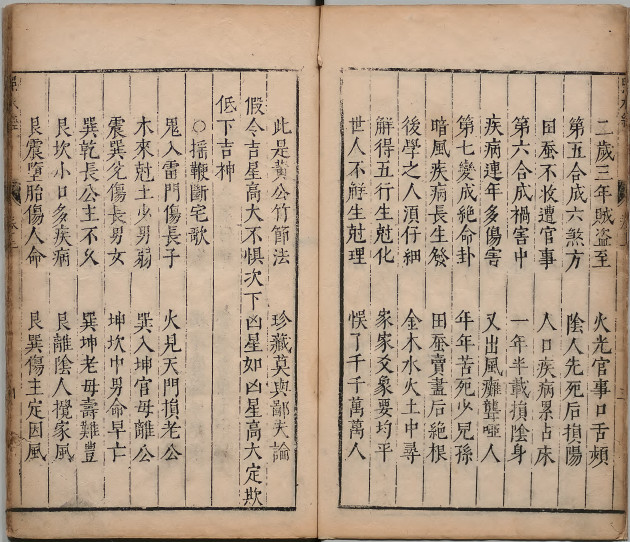 二歲三年賊盗至 火光官事口舌頻
第五合成六煞方 陰人先死后損陽
田蚕不收遭官事 人口疾病累占床
第六合成禍害中 一年半載損陰身
疾病連年多傷害 又出風癱聾啞人
第七變成絶命卦 年年苦死少兒孫
暗風疾病長生發 田蚕賣盡后絶根
後學之人須仔細 金木水火土中尋
解得五行生尅化 家家爻象要均平
世人不觧生尅理 悞了千千萬萬人
此是黄公竹節法 珍藏莫與鄙夫論
假令吉星高大不惧次下凶星如凶星高大定欺
低下吉神
○揺鞭斷宅歌
鬼入雷門傷長子 火見天門損老公
木來尅土少男弱 巽入坤宫母離公
震巽兌傷長男女 坤坎中男命早亡
巽乾長公主不久 巽坤老母壽難豊
艮坎小口多疾病 艮離陰人攪家風
艮震墮胎傷人命 艮巽傷主定因風